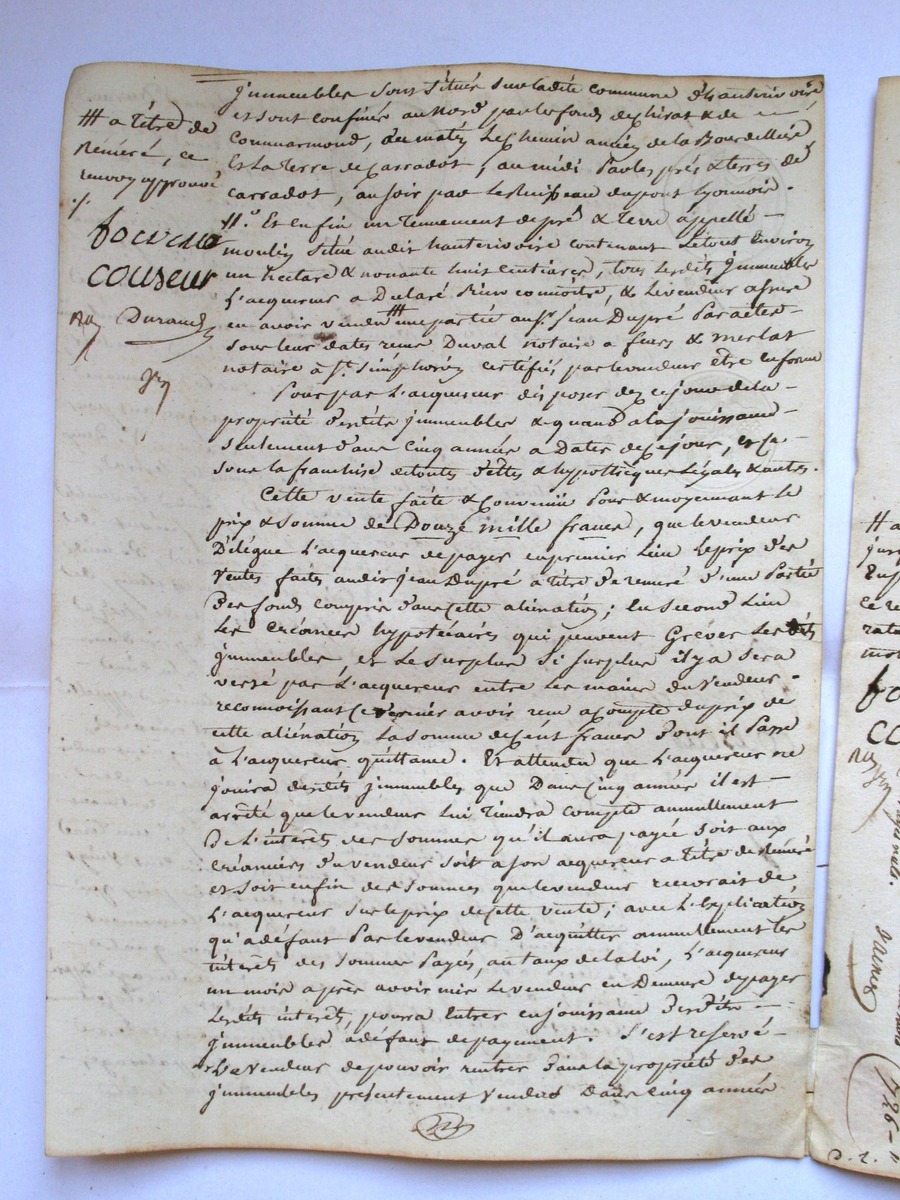 jmmeubles sont situés sur ladite commune d'hauterivoire
et sont confinés au nord par les fonds de chirat & de
commarmond, au matin le chemin ancien de la Bourdelliere
et La terre de Carradot, au midi Par les près & terres de
carradot, au soir par le Ruisseau du pont Lyonnois.
11.° Et enfin un tennement de pré & terre appellé
moulin situé audit hauterivoire contenant Le tout Environ
un hectare & nonante huit centiares, tous lesdits jmmeubles
L'acquereur a Déclaré bien connoitre, & Le vendeur assure
en avoir vendu # une partie au sr. jean Dupré Par actes
sous leur dates reçus Duval notaire a feurs & merlat
notaire à St. Simphorien certifiés par le vendeur être en forme
Pour par L'acquereur disposer dez ce jour de la
propriété desdits jmmeubles & quand a la jouissance
seulement dans cinq années a Dater de ce jour, et ce
sous la franchise de toutes dettes & hypothèques Légales & autres.
Cette vente faite & Convenüe Pour & moyennant le
prix & somme de Douze mille francs, que le vendeur
Délègue L'acquereur de payer en premier Lieu Le prix des
ventes faites audit jean Dupré a titre de remeré d'une Partie
des fonds compris dans cette alienation; En second Lieu
Les créances hypotécaires qui peuvent Grever Lesdits
jmmeubles, et Le surplus si surplus il y a sera
versé par L'acquereur entre les mains du vendeur.
reconnoissant ce dernier avoir reçu a compte du prix de
cette alienation La somme de cent francs dont il Passe
à L'acquereur quittance. Et attendu que L'acquereur ne
jouira desdits jmmeubles que Dans cinq années il est
arrêté que le vendeur Lui tiendra compte annuellement
De L'intérêt des sommes qu'il aura payée soit aux
créanciers du vendeur soit a son acquereur a titre de Remeré
et soit enfin des sommes que le vendeur recevrait de
L'acquereur sur le prix de cette vente; avec L'explication
qu'a défaut Par le vendeur D'acquitter annuellement les
intérêts des sommes Payés, au taux de la loi, L'acquereur
un mois après avoir mis Le vendeur en Demeure de payer
Lesdits intérêts, pourra Entrer en jouissance desdits
jmmeubles a défaut de payement. S'est reservé
Le vendeur de pouvoir rentrer dans la propriété des
jmmeubles présentement vendus Dans cinq années
# a titre de
Remeré, ce
renvoy approuvé
couseur
Durand
# a
ce re